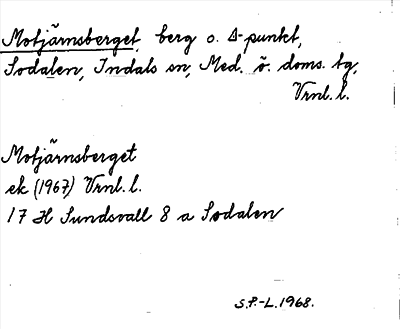 Motjärnsberget, berg o. Δ-punkt,
Sodalen, Indals sn, Med. ö. doms. tg,
Vrnl. l.
Motjärnsberget
ek (1967) Vrnl. l.
17 H Sundsvall 8 a Sodalen
S.P.-L. 1968.